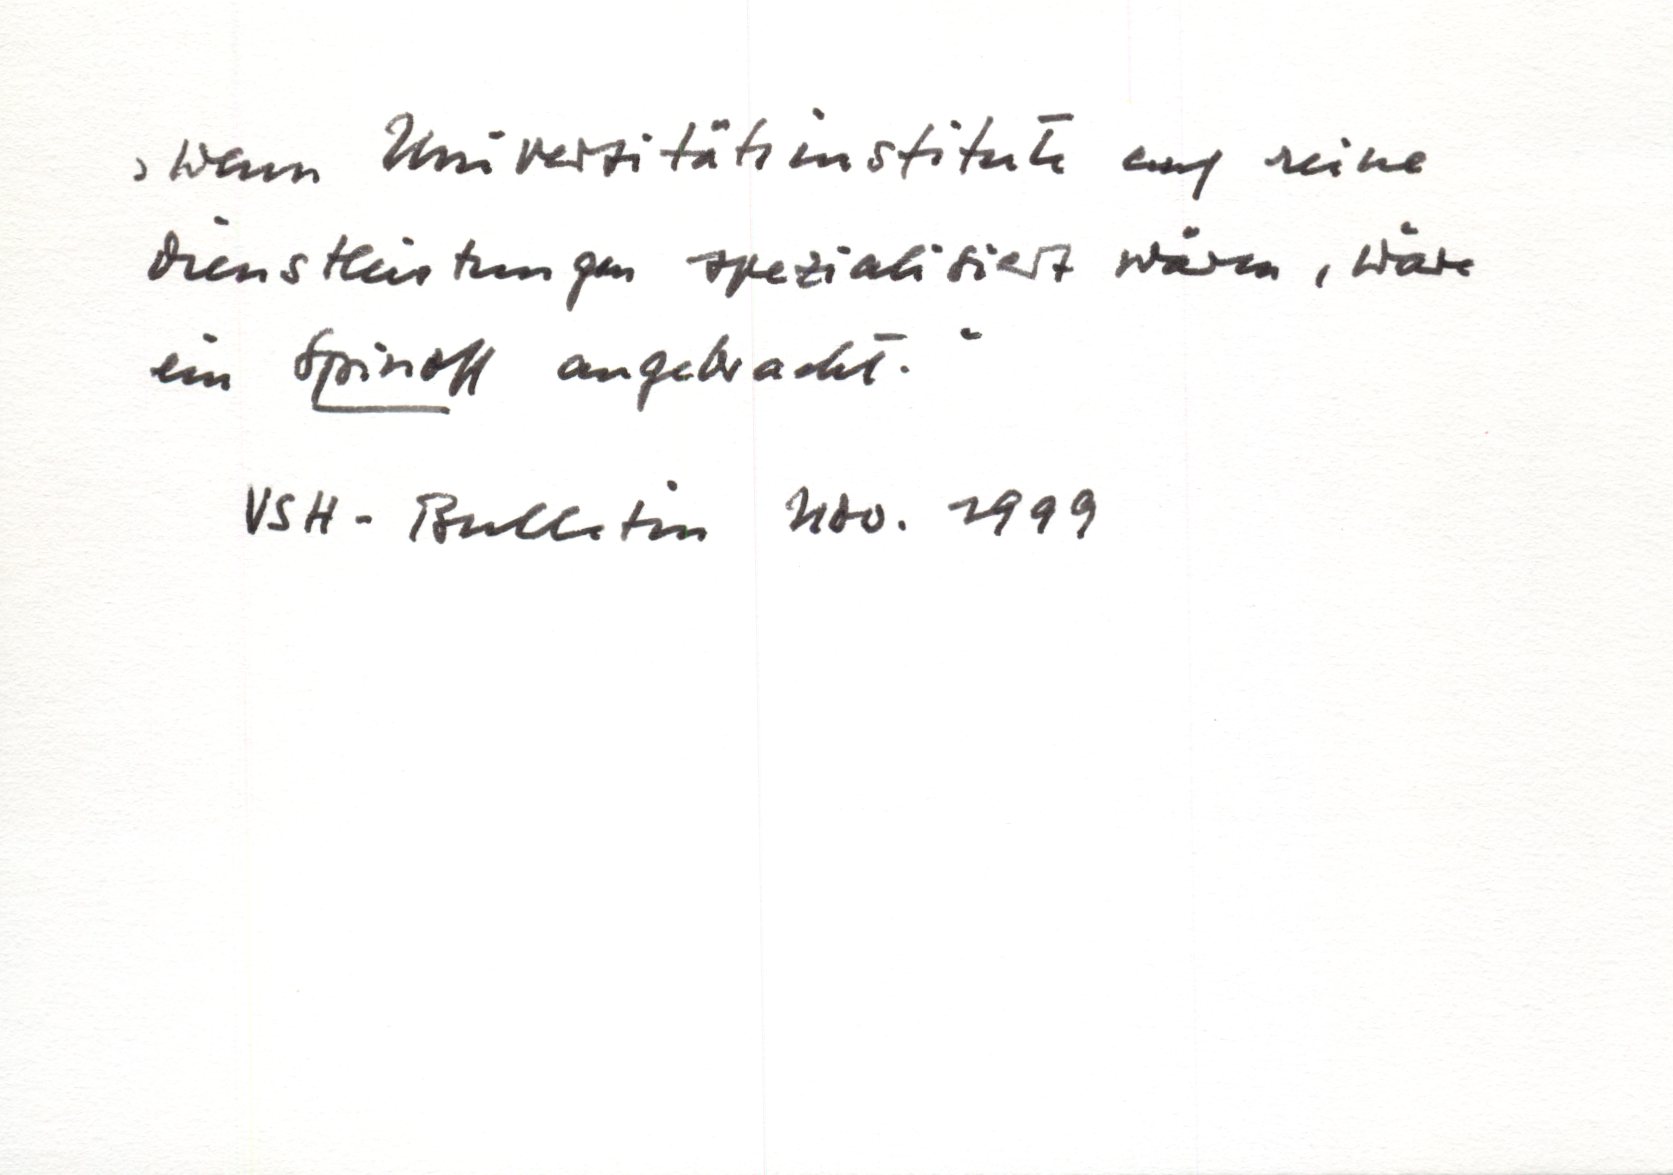 „Wenn Universitätsinstitute auf reine
Dienstleistungen spezialisiert wären, wäre
ein Spinoff angebracht."
VSH-Bulletin Nov. 1999